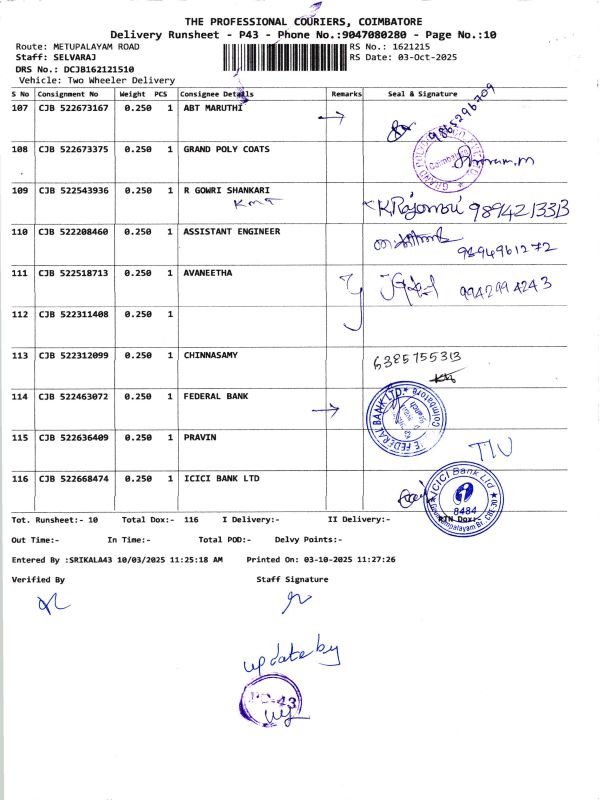 THE PROFESSIONAL COURIERS, COIMBATORE
Delivery Runsheet - P43 - Phone No.:9047080280 - Page No.:10
Route: METUPALAYAM ROAD RS No.: 1621215
Staff: SELVARAJ RS Date: 03-Oct-2025
DRS No.: DCJB162121510
Vehicle: Two Wheeler Delivery
S No Consignment No Weight PCS Consignee Details Remarks Seal & Signature
107 CJB 522673167 0.250 1 ABT MARUTHI 9865296709
108 CJB 522673375 0.250 1 GRAND POLY COATS
109 CJB 522543936 0.250 1 R GOWRI SHANKARI 9894213313
110 CJB 522208460 0.250 1 ASSISTANT ENGINEER 9894961272
111 CJB 522518713 0.250 1 AVANEETHA 9942994243
112 CJB 522311408 0.250 1
113 CJB 522312099 0.250 1 CHINNASAMY 6385755313
114 CJB 522463072 0.250 1 FEDERAL BANK FEDERAL BANK LTD. Coimbatore
115 CJB 522636409 0.250 1 PRAVIN
116 CJB 522668474 0.250 1 ICICI BANK LTD ICICI Bank Ltd 8484
Tot. Runsheet:- 10 Total Dox:- 116 I Delivery:- II Delivery:- RTN Dox:-
Out Time:- In Time:- Total POD:- Delvy Points:-
Entered By :SRIKALA43 10/03/2025 11:25:18 AM Printed On: 03-10-2025 11:27:26
Verified By Staff Signature
update by